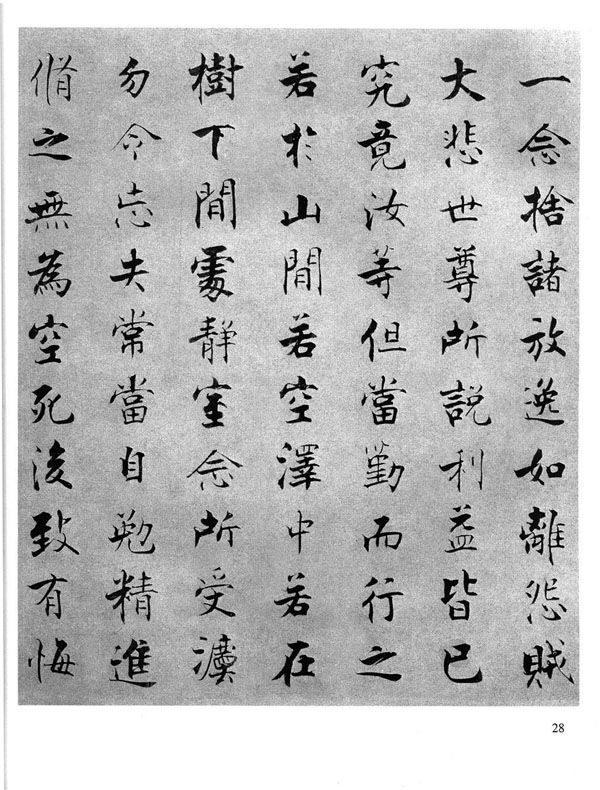 一念捨諸放逸如離怨賊
大悲世尊所説利益皆已
究竟汝等但當勤而行之
若於山間若空澤中若在
樹下閒處靜室念所受法
勿令忘失常當自勉精進
脩之無為空死後致有悔
28